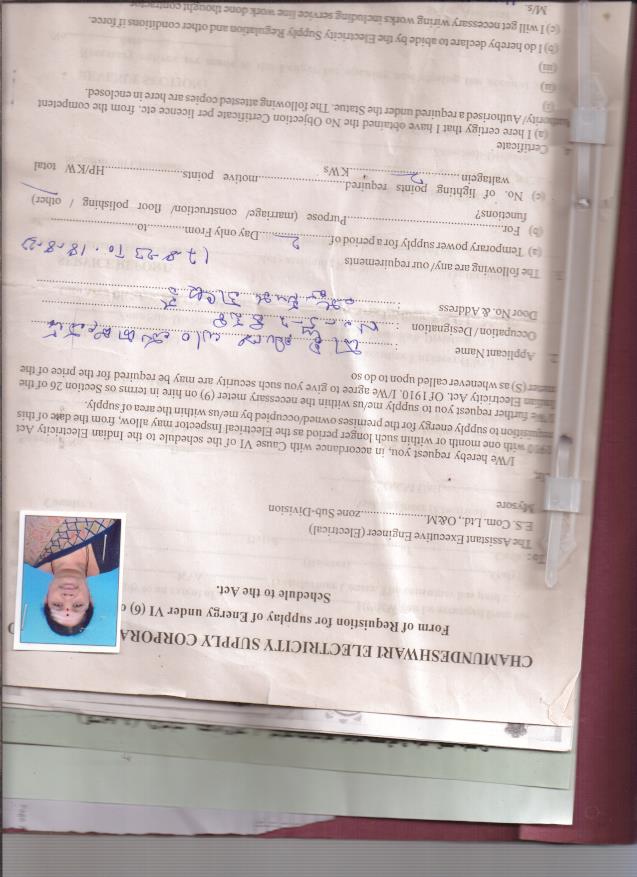 CHAMUNDESHWARI ELECTRICITY SUPPLY CORPORA
Form of Requistion for supplay of Energy under VI (6) o
Schedule to the Act.
To:
The Assistant Executive Engineer (Electrical)
E.S. Com. Ltd., O&M....................zone Sub-Division
Mysore
Sir,
I/We hereby request you, in accordance with Cause VI of the schedule to the Indian Electricity Act
1910 with one month or within such longer period as the Electrical Inspector may allow, from the date of this
requisition to supply energy for the premises owned/occupied by me/us within the area of supply.
I/We further request you to supply me/us within the necessary meter (9) on hire in terms os Section 26 of the
Indian Electricity Act. Of 1910. I/We agree to give you such security are may be required for the price of the
meter (S) as whenever called upon to do so
2. Applicant Name :
Occupation / Designation :
Door No. & Address :
The following are any/ our requirements 17-8-23 To. 18-8-23
(a) Temporary power supply for a period of.......2.......Day only From................to................
(b) For................Purpose (marriage/ construction/ floor polishing / other)
functions?
(c) No. of lighting points required................motive points................HP/KW total
waltagein........2........KWs
4. Certificate
(a) I here certigy that I have obtained the No Objection Certificate per licence etc. from the competent
Authority/ Authorised a required under the Statue. The following attested copies are here in enclosed.
(i)
(ii)
(iii)
(b) I do hereby declare to abide by the Electricity Supply Regulation and other conditions if force.
(c) I will get necessary wiring works including service line work done thought contractor
M/s.